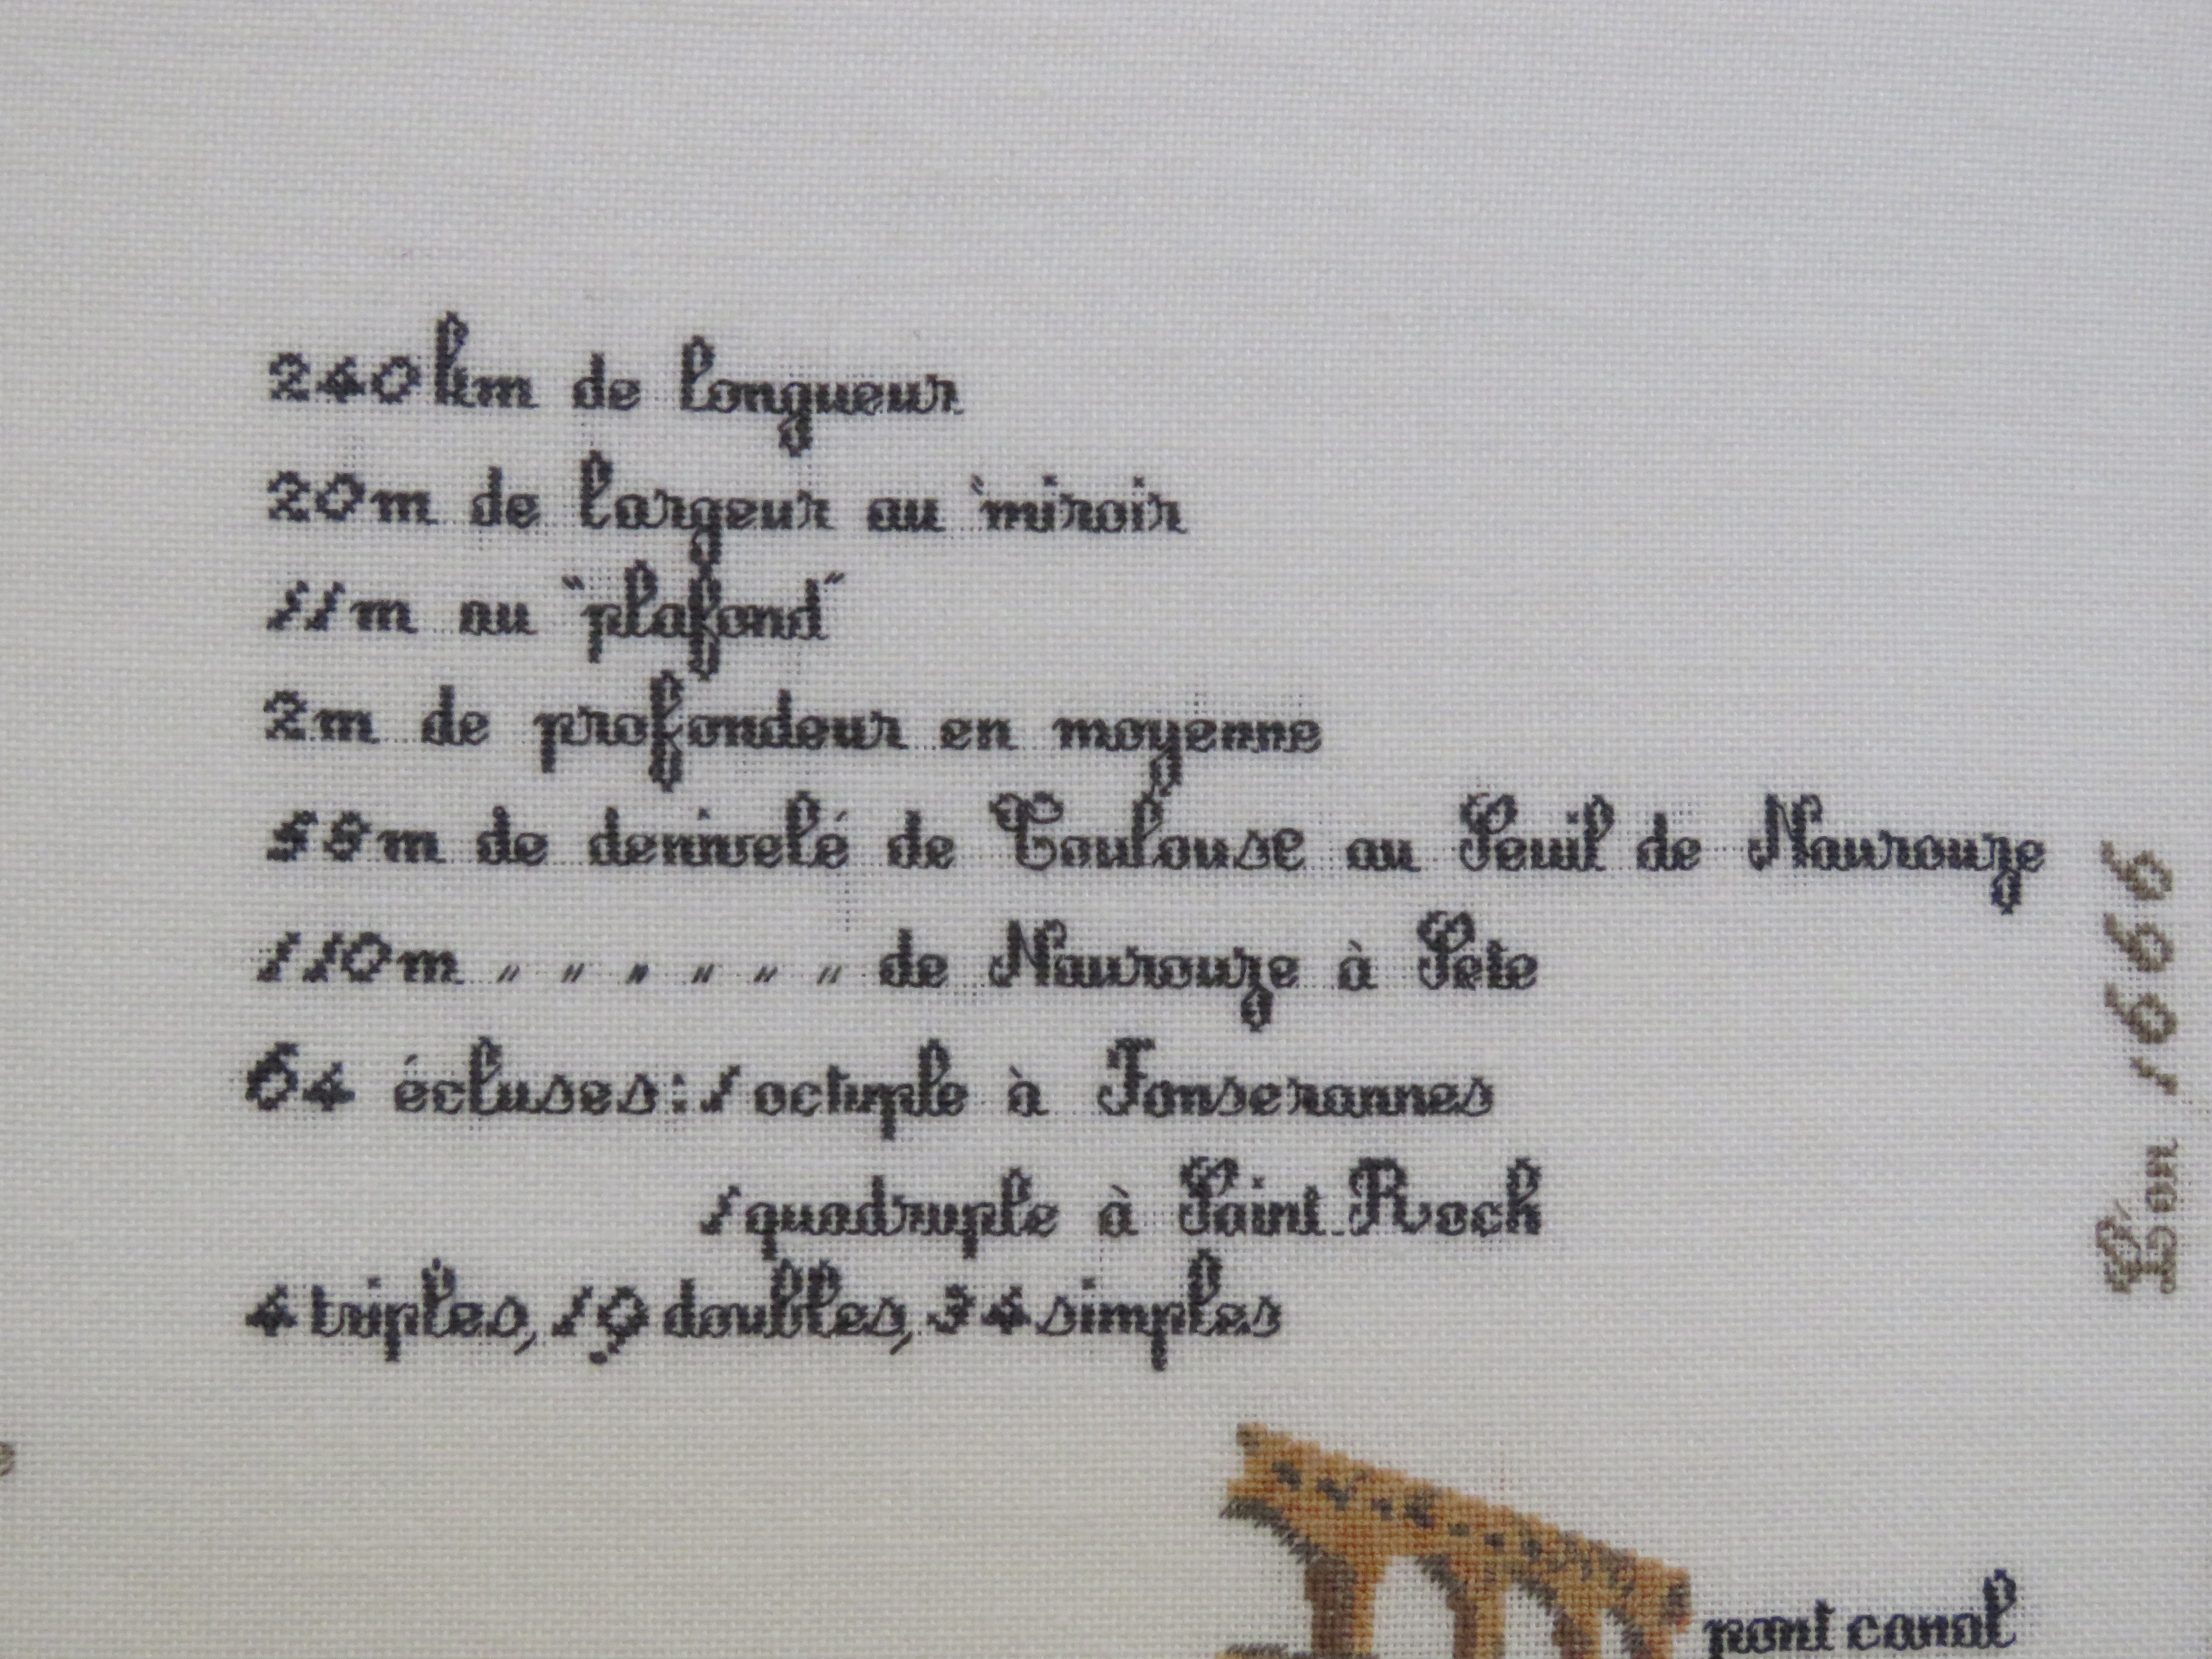 240 km de longueur
20 m de largeur au "miroir
11 m au "plafond"
2 m de profondeur en moyenne
58 m de denivelé de Toulouse au Seuil de Naurouze
110 m " " " " " " de Naurouze à Sete
64 écluses: 1 octuple à Fonserannes
1 quadruple à Saint Roch
4 triples, 19 doubles, 34 simples
pont canal
L'an 1666